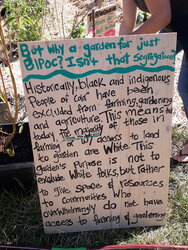 But why a garden for just
BIPOC? Isn't that segregation?
Historically, black and indigenous
People of Color have been
excluded from farming, gardening
and agriculture. This means
today the majority of those in
farming or w/ access to land
to garden are White. This
garden's purpose is not to
exclude White folks, but rather
to give space & resources
to communities who
overwhelmingly do not have
access to farming & gardening